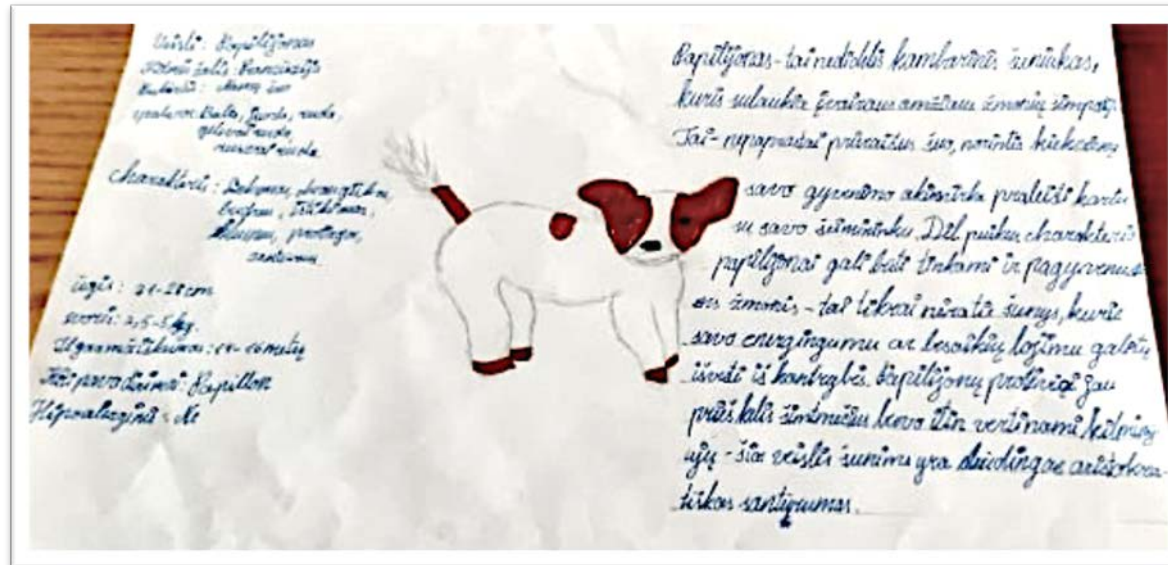 Veislė: Papilijonas
Kilmės šalis: Prancūzija
spalvos: Balta, juoda, ruda,
gelsvai ruda,
rusvai ruda
Charakteris:
protingas,
ūgis: 21-28cm
svoris: 2,5-5kg.
Ilgaamžiškumas: 14-16metų
Kiti pavadinimai: Papillon
Hipoalerginė: Ne
Papilijonas-tai nedidelis kambarinis šuniukas,
kuris sulaukia įvairaus amžiaus žmonių simpatijų
Tai- nepaprastai prieraišus šuo, norintis kiekvieną
savo gyvenimo akimirką praleisti kartu
su savo šeimininku. Dėl puikaus charakterio
papilijonai gali būti tinkami ir pagyvenusi
ems žmonės - tai tikrai nėra tie šunys, kurie
savo energingumu ar besaikių lojimu galėtų
išvesti iš kantrybės. Papilijonų protėviai jau
prieš kelis šimtmečius buvo itin vertinami kilming
ųjų - šios veislės šunims yra būdingas aristokra-
tiškas santūrumas.